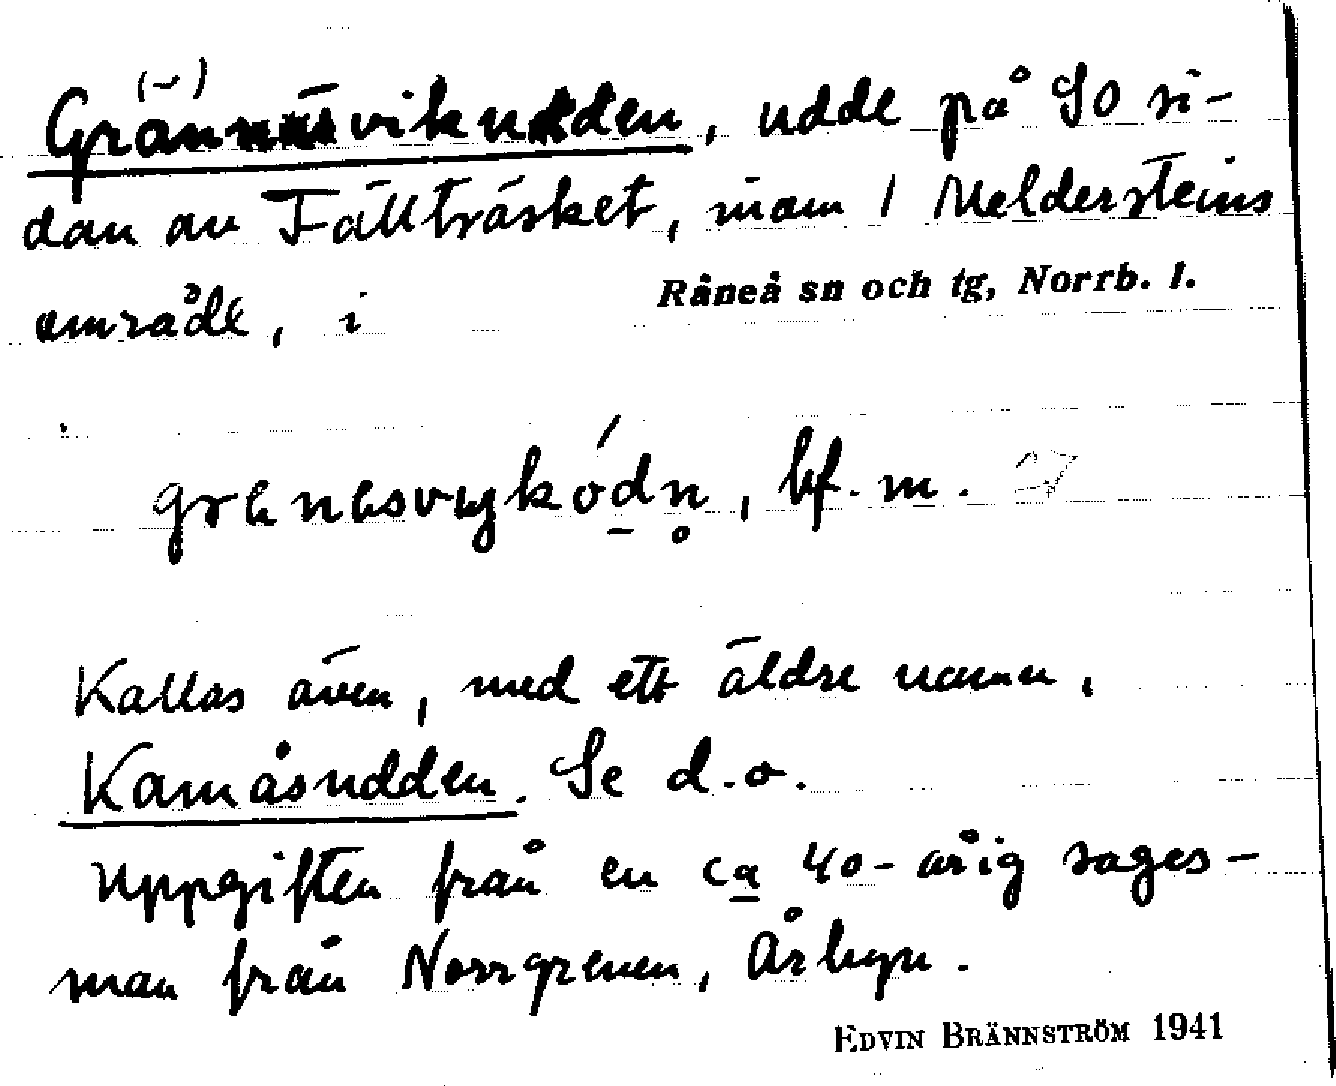 Grännäsvikudden, udde på SO si-
dan av Fällträsket, inom / Meldersteins
område, i Råneå sn och tg, Norrb. l.
bf. m.
Kallas även, med ett äldre namn,
Kamåsudden. Se d.o.
Uppgiften från en ca 40-årig sages-
man från Norrgrenen, Årbyn.
EDVIN BRÄNNSTRÖM 1941